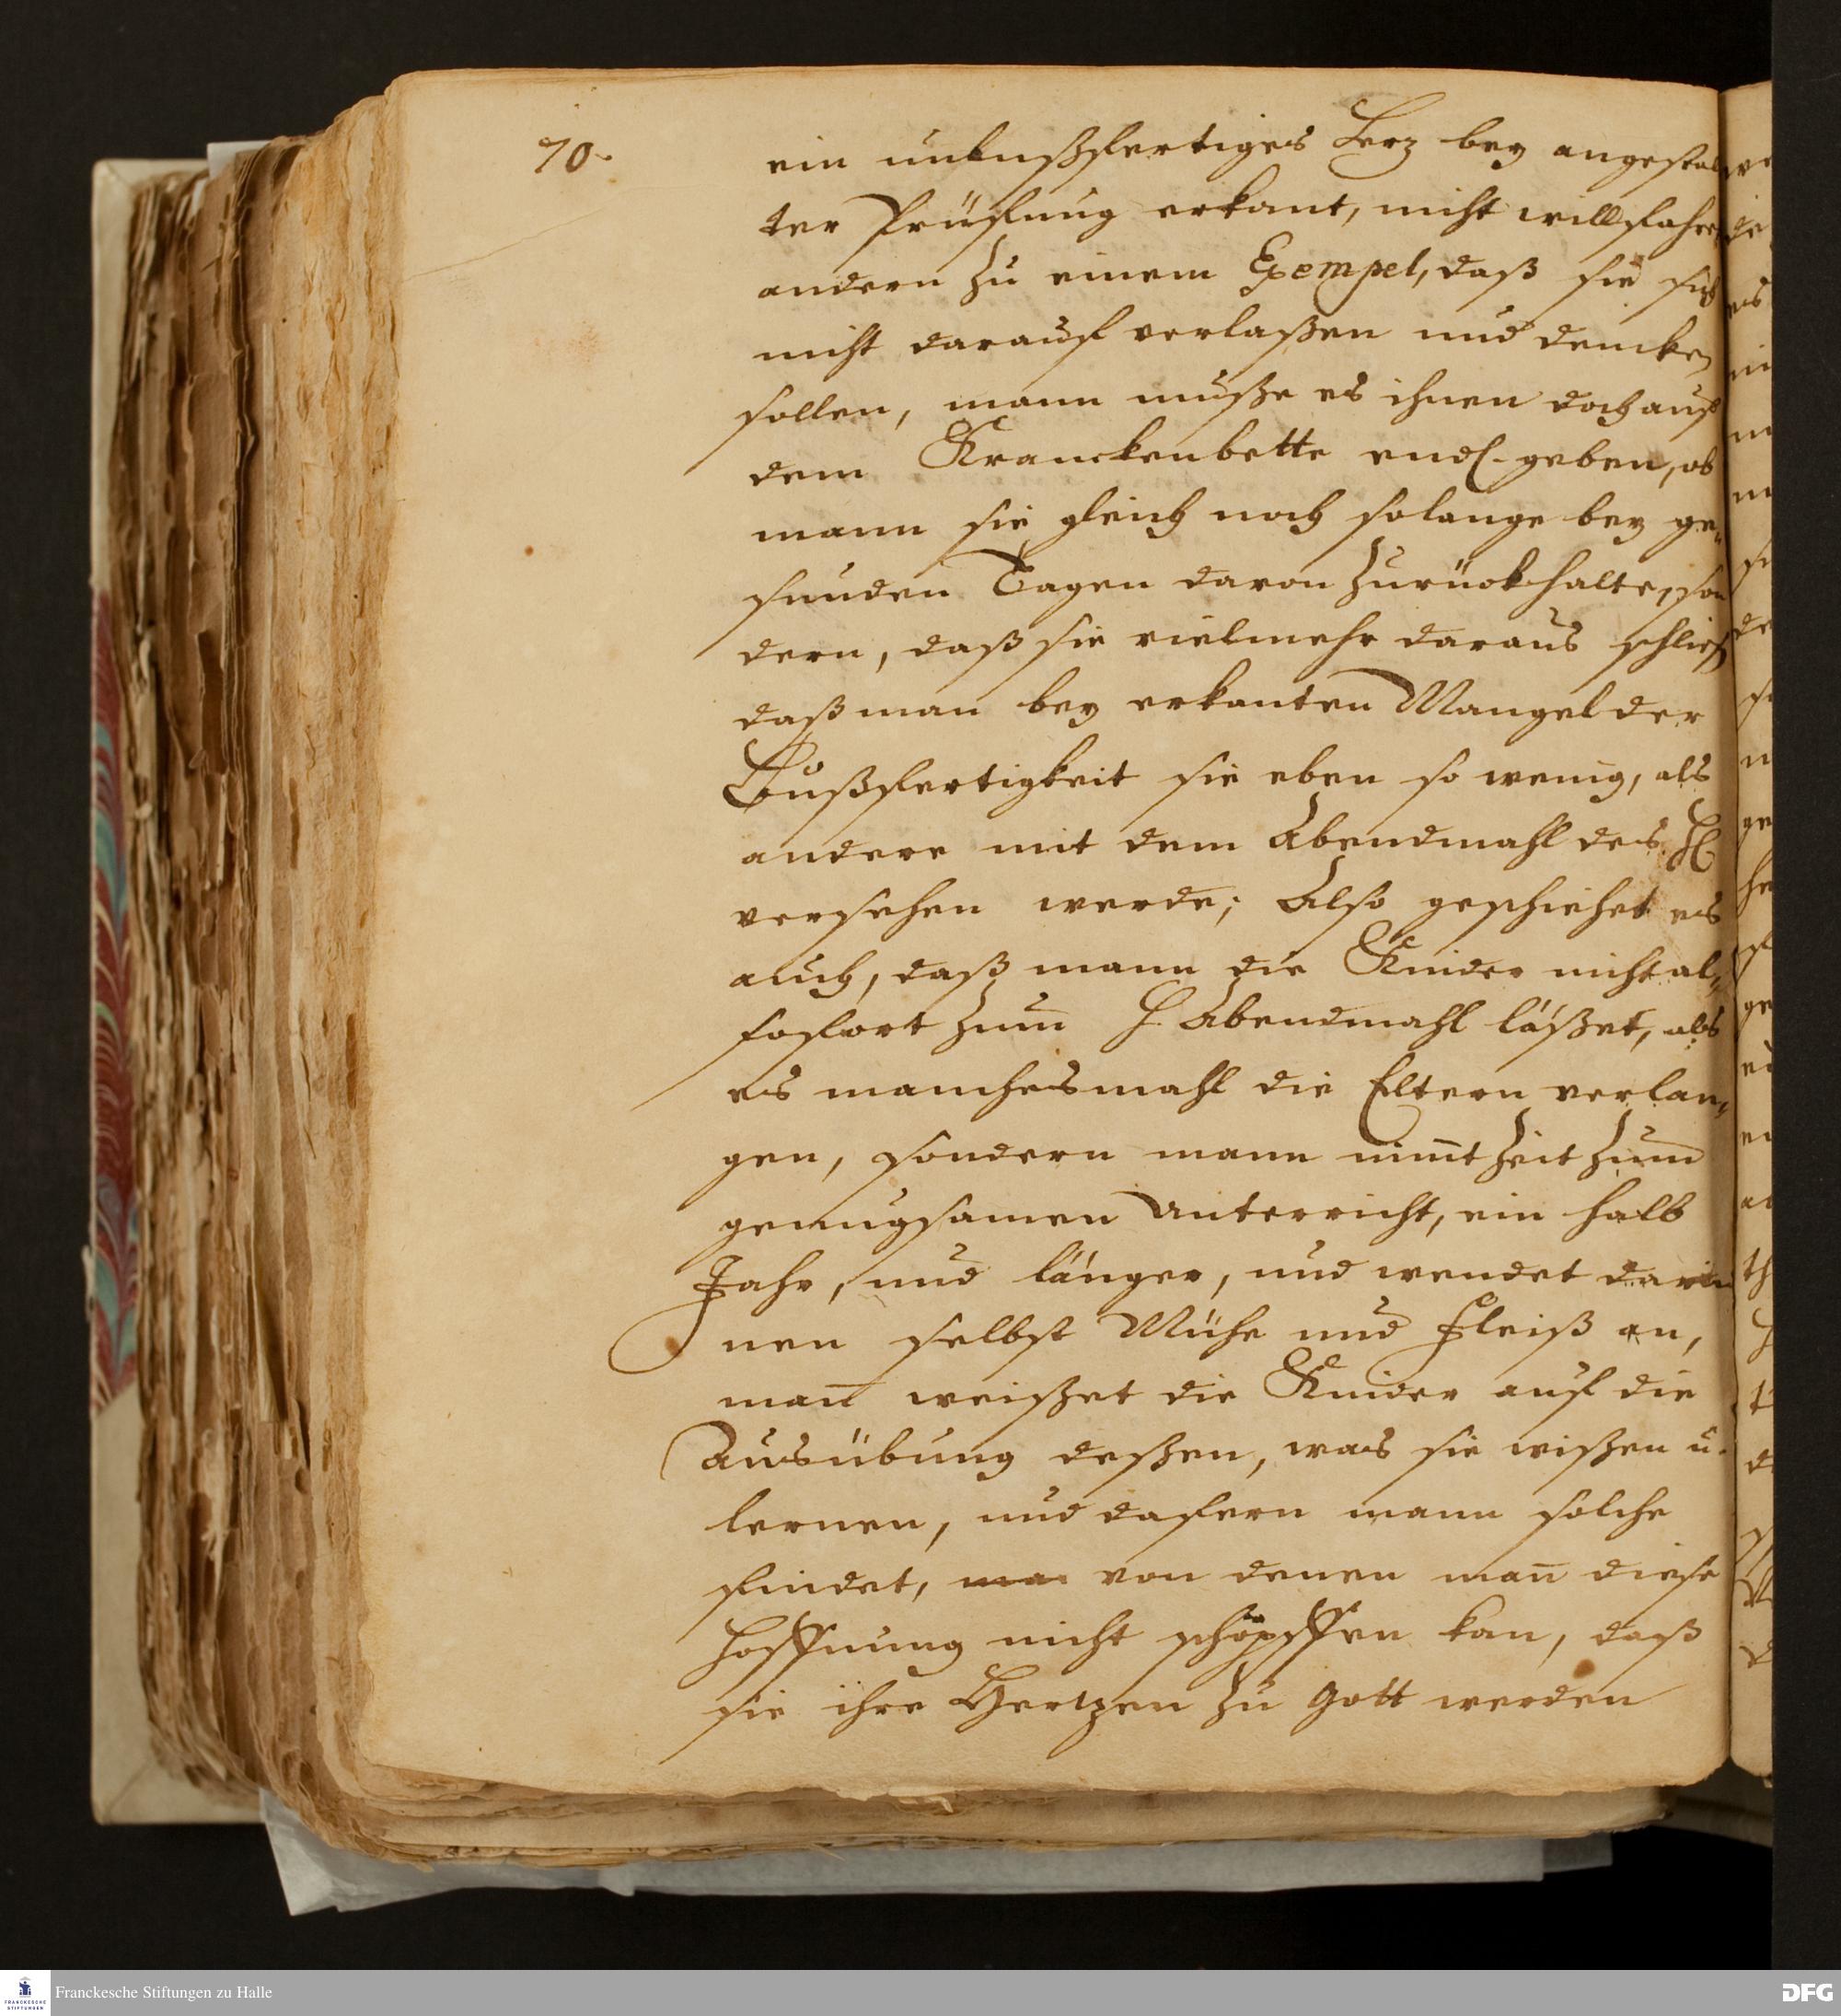 70.
ein unbußfertiges Herz bey angestal
ter Prüfung erkant, nicht willfahre
andern zu einem Exempel, daß sie sich
nicht darauf verlaßen und dencken
sollen, mann müße es ihnen doch auf
dem Kranckenbette endl. geben, ob
mann sie gleich noch solange bey ge„
sunden Tagen davon zurückhalte, son
dern, daß sie vielmehr daraus schließ
daß man bey erkanten Mangel der
Bußfertigkeit sie eben so wenig, als
andere mit dem Abendmahl des H
versehen werde; Also geschiehet es
auch, daß mann die Kinder nicht al„
sofort zum H. Abendmahl läßet, als
es manchesmahl die Eltern verlan„
gen, sondern mann nim̄t Zeit zum
genugsamen Unterricht, ein halb
Jahr, und länger, und wendet darin
nen selbst Mühe und Fleiß an,
man̄ weißet die Kinder auf die
Ausübung deßen, was sie wißen u.
lernen, und dafern mann solche
findet, von denen man̄ diese
Hoffnung nicht schöpffen kan, daß
sie ihre Hertzen zu Gott werden
Franckesche Stiftungen zu Halle
FRANCKESCHE
STIFTUNGEN
DFG